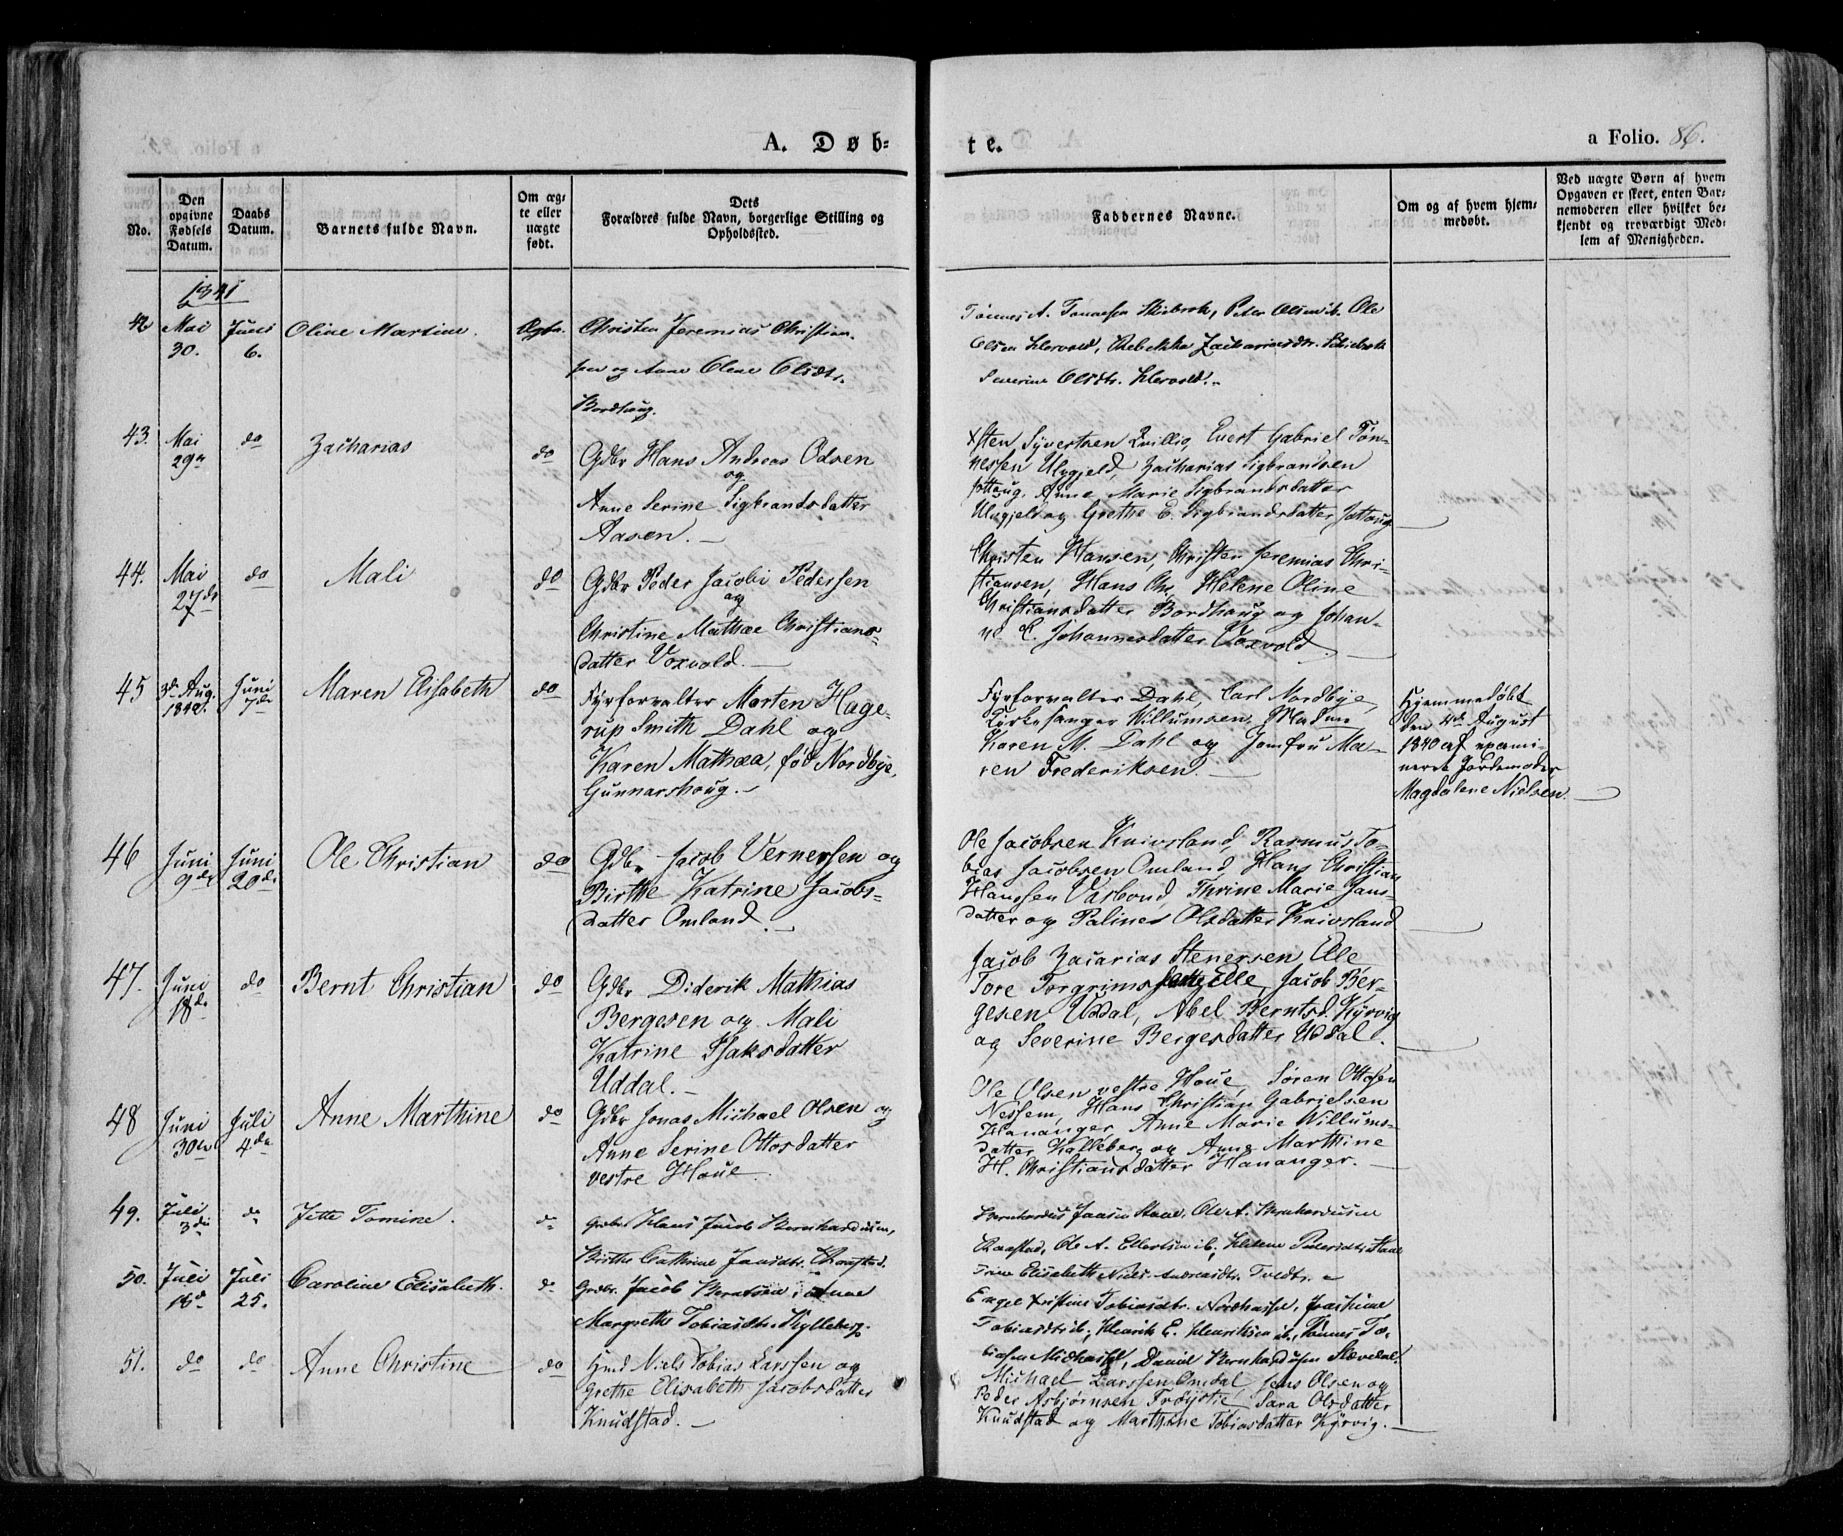 A. Døb=
te.
a Folio. 86.
No.
Den opgivne Fødsels Datum.
Daabs Datum.
Barnets fulde Navn.
Om ægte eller uægte født.
Dets Forældres fulde Navn, borgerlige Stilling og Opholdssted.
Faddernes Navne.
Om og af hvem hjemmedøbt.
Ved uægte Børn af hvem
Opgaven er skeet, enten Bar=
nemoderen eller hvilket be=
kjendt og troværdigt Med=
lem af Menigheden.
1841
42 Mai 30. Juni 6. Oline Martine.
Christen Jeremias Christian
sen og Anne Olene Olsdtr.
Bordhaug.
Tønnes A. Tønnesen Skibrok, Peter Olsen ib. Ole
Olsen Hervold, Rebekka Zachariasdtr. Skibrok
Severine Olsdtr. Hervold.
43. Mai 29de do Zacharias do
Gdbr Hans Andreas Odsen
og
Anne Serine Sigbrandsdatter
Aasen.
Xsten Syvertsen Qvillig, Evert Gabriel Tøn-
nessen Ulygjeld, Zacharias Sigbrandsen
Jottoug, Anne Marie Sigbrandsdatter
Ulygjeld og Grethe E. Sigbrandsdatter Jottoug
44. Mai 27de do Mali do
Gdbr Peder Jacobi Pedersen
og
Christine Mathæa Christians-
datter Voxvold.
Christen Hansen, Christen Jeremias Chri-
stiansen, Hans Chr. Helene Oline
Christiansdatter Bordhaug og Johan-
ne E. Johannesdatter Voxvold
45 3de Aug. 1840. Juni 7de Maren Elisabeth do
Fyrforvalter Morten Hage-
rup Smith Dahl og
Karen Mathæa, fød Nordbye,
Gunnarshoug.
Fyrforvalter Dahl, Carl Nordbye,
Kirkesanger Willumsen, Madam
Karen M. Dahl og Jomfru Ma-
ren Frederiksen.
Hjemmedøbt
den 4de August
1840 af exami-
neret Jordemoder
Magdalene Nielsen.
46 Juni 9de Juni 20de Ole Christian do
Gdbr Jacob Vernersen og
Birthe Katrine Jacobs-
datter Omland.
Ole Jacobsen Knivsland, Rasmus To-
bias Jacobsen Omland, Hans Christian
Hanssen Varbond, Thrine Marie Jans-
datter og Paline Olsdatter Knivsland
47. Juni 18de do Bernt Christian do
Gdbr Diderik Mathias
Bergesen og Mali
Katrine Isaksdatter
Uddal.
Jacob Zacarias Stenersen, Elle
Tore Torgrims Elle, Jacob Ber-
gesen Uddal, Abel Berntsd. Kyrvig
og Severine Bergesdatter Uddal.
48 Juni 30te Juli 4de Anne Marthine do
Gdbr Jonas Michael Olsen og
Anne Serine Ottosdatter
vestre Houe
Ole Olsen vestre Houe, Søren Ottosen
Nessem, Hans Christian Gabrielsen
Hananger, Anne Marie Willums-
datter Kalleberg og Anne Marthine
H. Christiansdatter Hananger.
49. Juli 3die do Jette Tomine. do
Gdbr Hans Jacob Bernhardusen,
Birthe Cathrine Jansdtr.
Bernhardus Jansen Ole A. Bernhardusen
Ole A. Ellertsen ib, Helene
Trine Elisabeth Niels Andreasdtr. Tvedtr.
50. Juli 16d Juli 25. Caroline Elisabeth. do
Gdbr. Jacob Berntsen, Anne
Margrethe Tobiasdtr. Kylleberg.
Engel Kristine Tobiasdtr. Nordhassel,
Tobiasdtr ib, Henrik E. Henriksen ib, Tønnes To-
biasen Midhassel, Daniel Bernhardusen Slevdal.
51. do do Anne Christine do
Hmd Niels Tobias Larssen og
Grethe Elisabeth Jacobsdatter
Knudstad.
Michael Larssen Omdal, Jens Olsen og
Peder Asbjørnsen Trøjstie, Sara Olsdatter
Knudstad og Marthine Tobiasdatter Kyrvig.